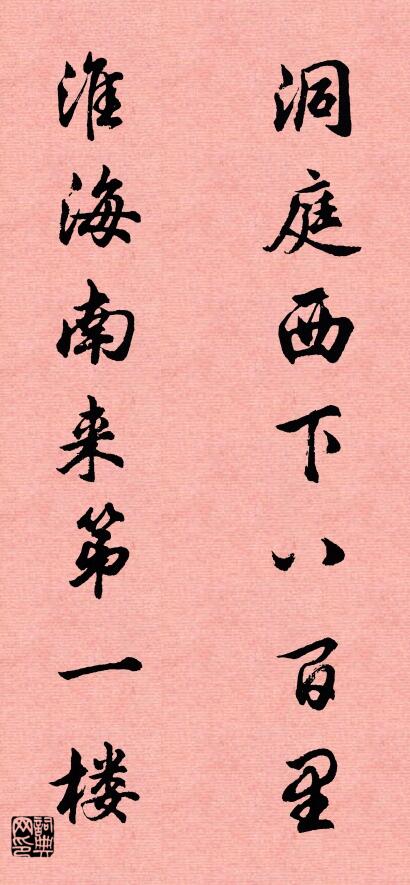 洞庭西下八百里
淮海南来第一楼
词典网印